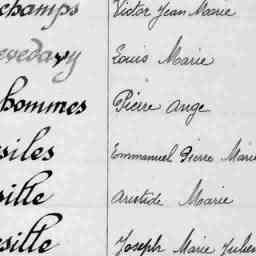 champs Victor Jean Marie
Louis Marie
hommes Pierre Ange
siles Emmanuel Pierre Marie
sille Aristide Marie
sille Joseph Marie Julien